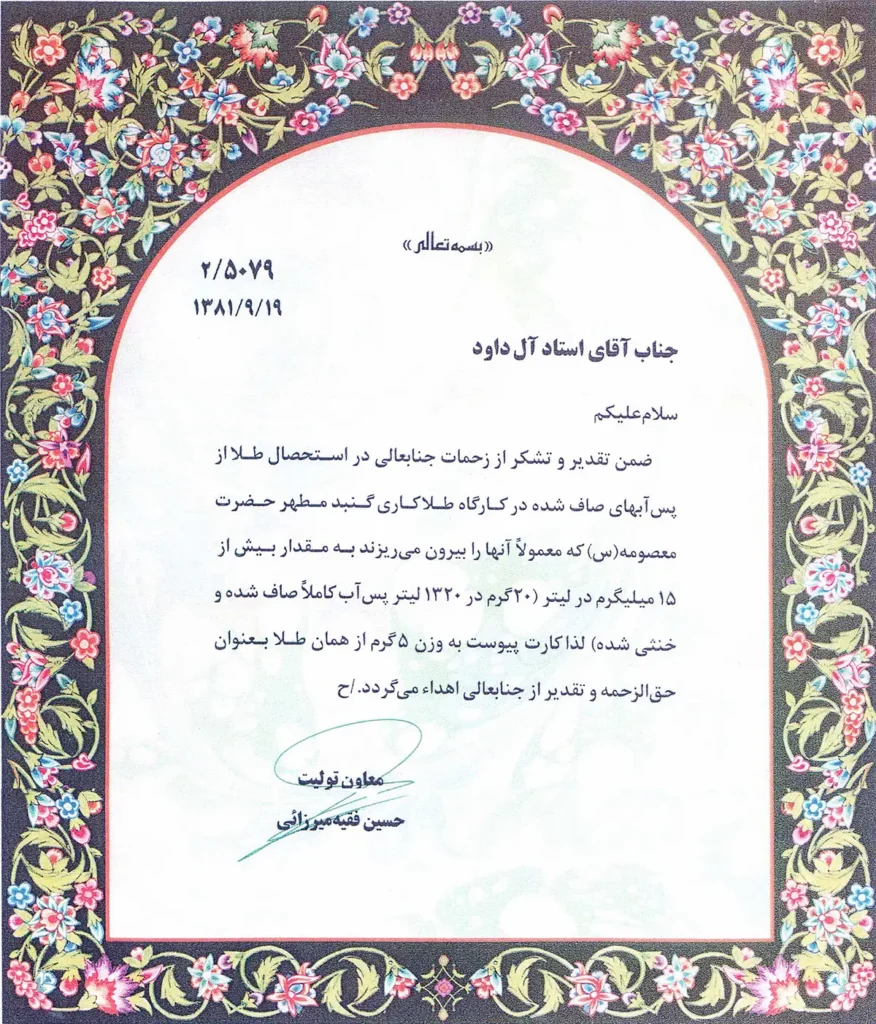 «بسمه تعالی»
۲/۵۰۷۹
۱۳۸۱/۹/۱۹
جناب آقای استاد آل داود
سلام علیکم
ضمن تقدیر و تشکر از زحمات جنابعالی در استحصال طلا از
پس‌آبهای صاف شده در کارگاه طلاکاری گنبد مطهر حضرت
معصومه(س) که معمولاً آنها را بیرون می‌ریزند به مقدار بیش از
۱۵ میلیگرم در لیتر (۲۰گرم در ۱۳۲۰ لیتر پس‌آب کاملاً صاف شده و
خنثی شده) لذا کارت پیوست به وزن ۵ گرم از همان طلا بعنوان
حق‌الزحمه و تقدیر از جنابعالی اهداء می‌گردد./ح
معاون تولیت
حسین فقیه میرزائی